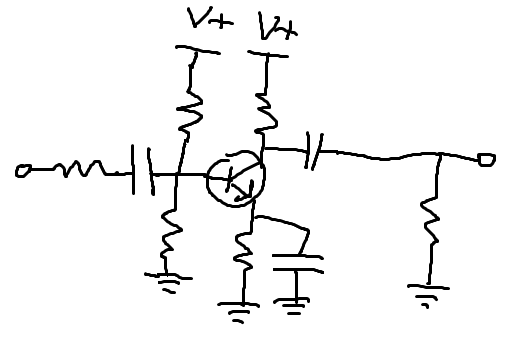 V+ V+